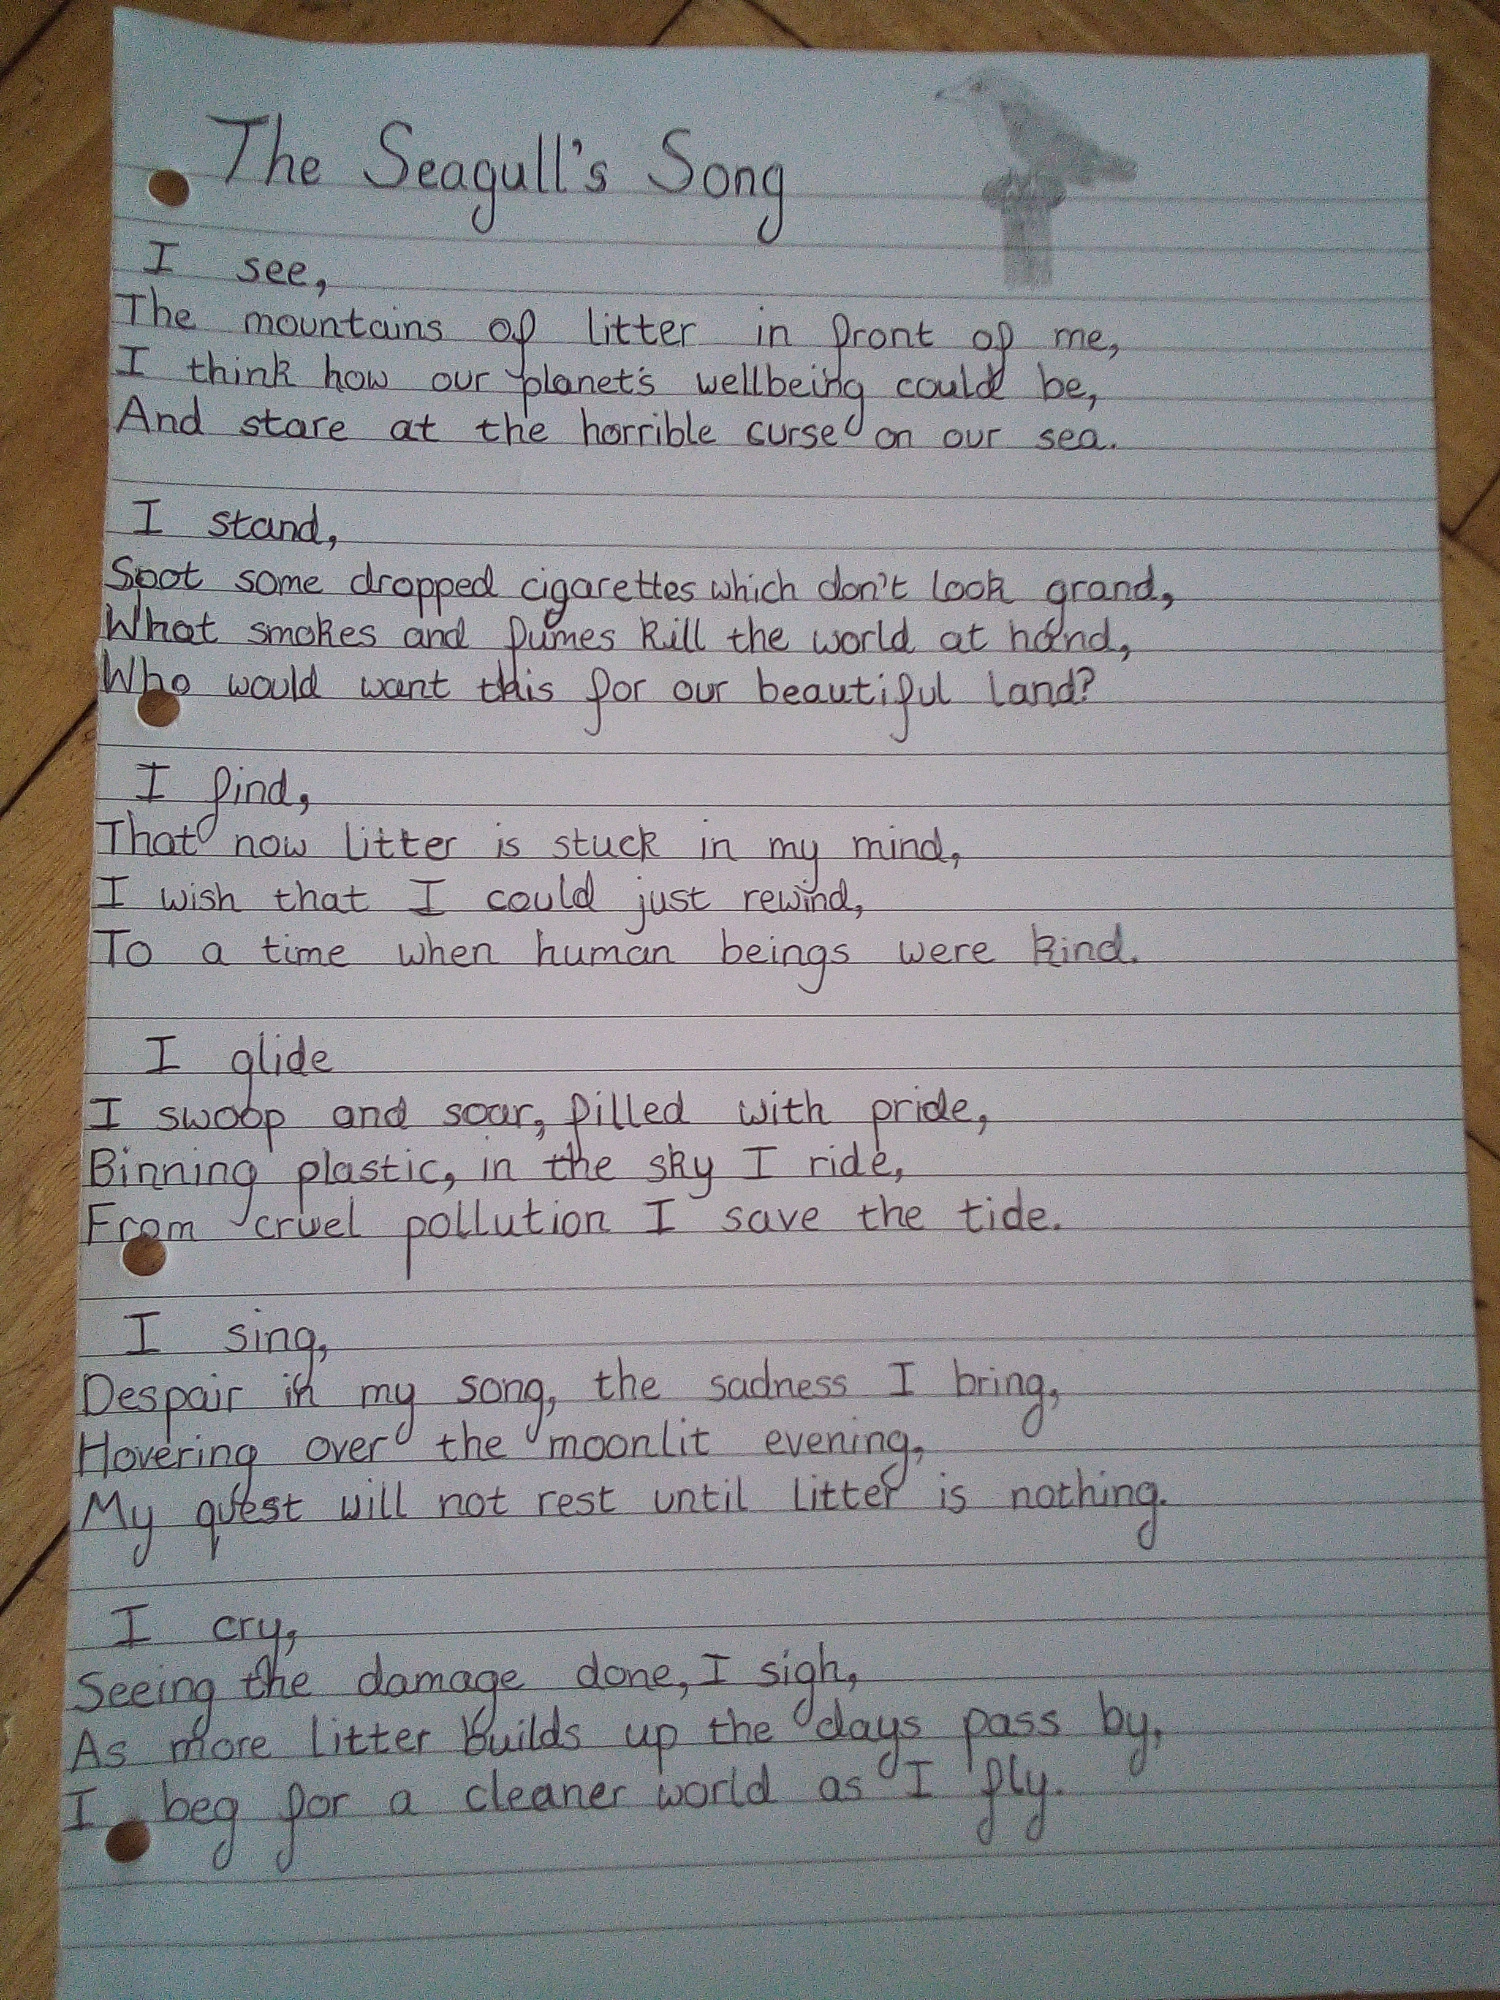 The Seagull's Song
I see,
The mountains of litter in front of me,
I think how our planet's wellbeing could be,
And stare at the horrible curse on our sea.
I stand,
Spot some dropped cigarettes which don't look grand,
What smokes and fumes kill the world at hand,
Who would want this for our beautiful land?
I find,
That now litter is stuck in my mind,
I wish that I could just rewind,
To a time when human beings were kind.
I glide
I swoop and soar, filled with pride,
Binning plastic, in the sky I ride,
From cruel pollution I save the tide.
I sing,
Despair in my song, the sadness I bring,
Hovering over the moonlit evening,
My quest will not rest until litter is nothing.
I cry,
Seeing the damage done, I sigh,
As more litter builds up the days pass by,
I beg for a cleaner world as I fly.